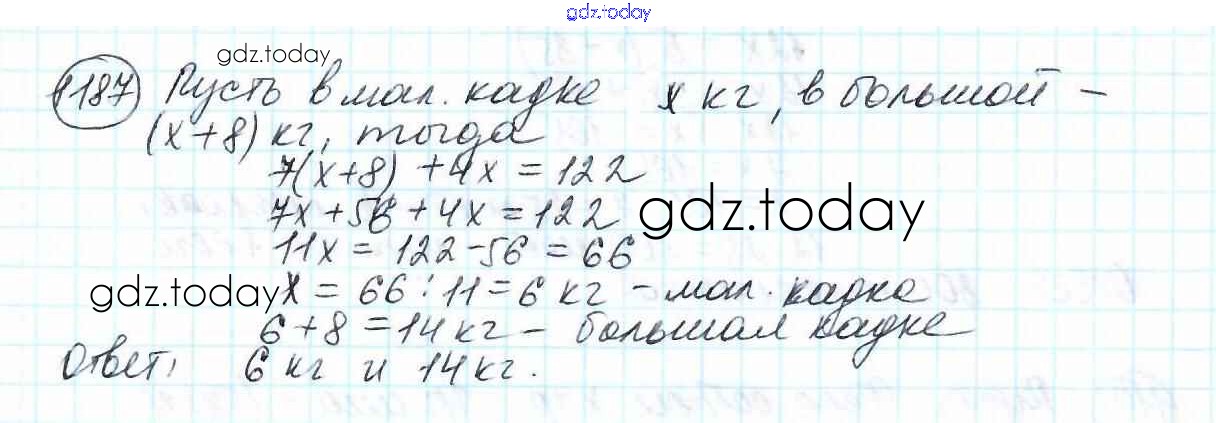 gdz.today
gdz.today
1187 Пусть в мал. кадке x кг, в большой –
(x+8) кг, тогда
7(x+8) + 4x = 122
7x + 56 + 4x = 122 gdz.today
11x = 122 - 56 = 66
gdz.today x = 66 : 11 = 6 кг – мал. кадка
6 + 8 = 14 кг – большая кадке
Ответ: 6 кг и 14 кг.